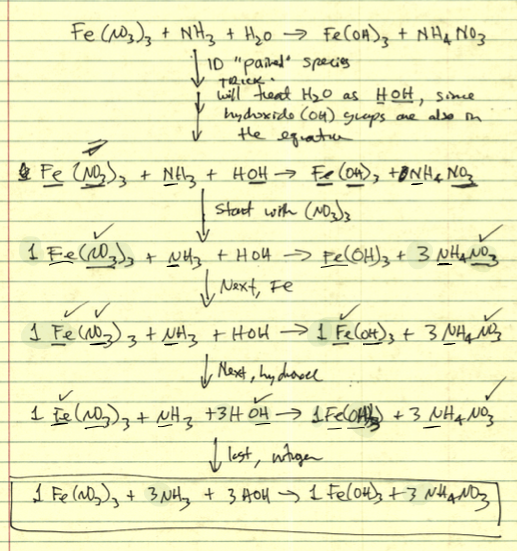 Fe(NO3)3 + NH3 + H2O → Fe(OH)3 + NH4NO3
ID "paired" species
TRICK:
will treat H2O as HOH, since
hydroxide (OH) groups are also in
the equation
Fe(NO3)3 + NH3 + HOH → Fe(OH)3 + NH4NO3
start with (NO3)3
1 Fe(NO3)3 + NH3 + HOH → Fe(OH)3 + 3 NH4NO3
Next, Fe
1 Fe(NO3)3 + NH3 + HOH → 1 Fe(OH)3 + 3 NH4NO3
Next, hydroxide
1 Fe(NO3)3 + NH3 + 3HOH → 1Fe(OH)3 + 3 NH4NO3
last, nitrogen
1 Fe(NO3)3 + 3NH3 + 3HOH → 1 Fe(OH)3 + 3 NH4NO3